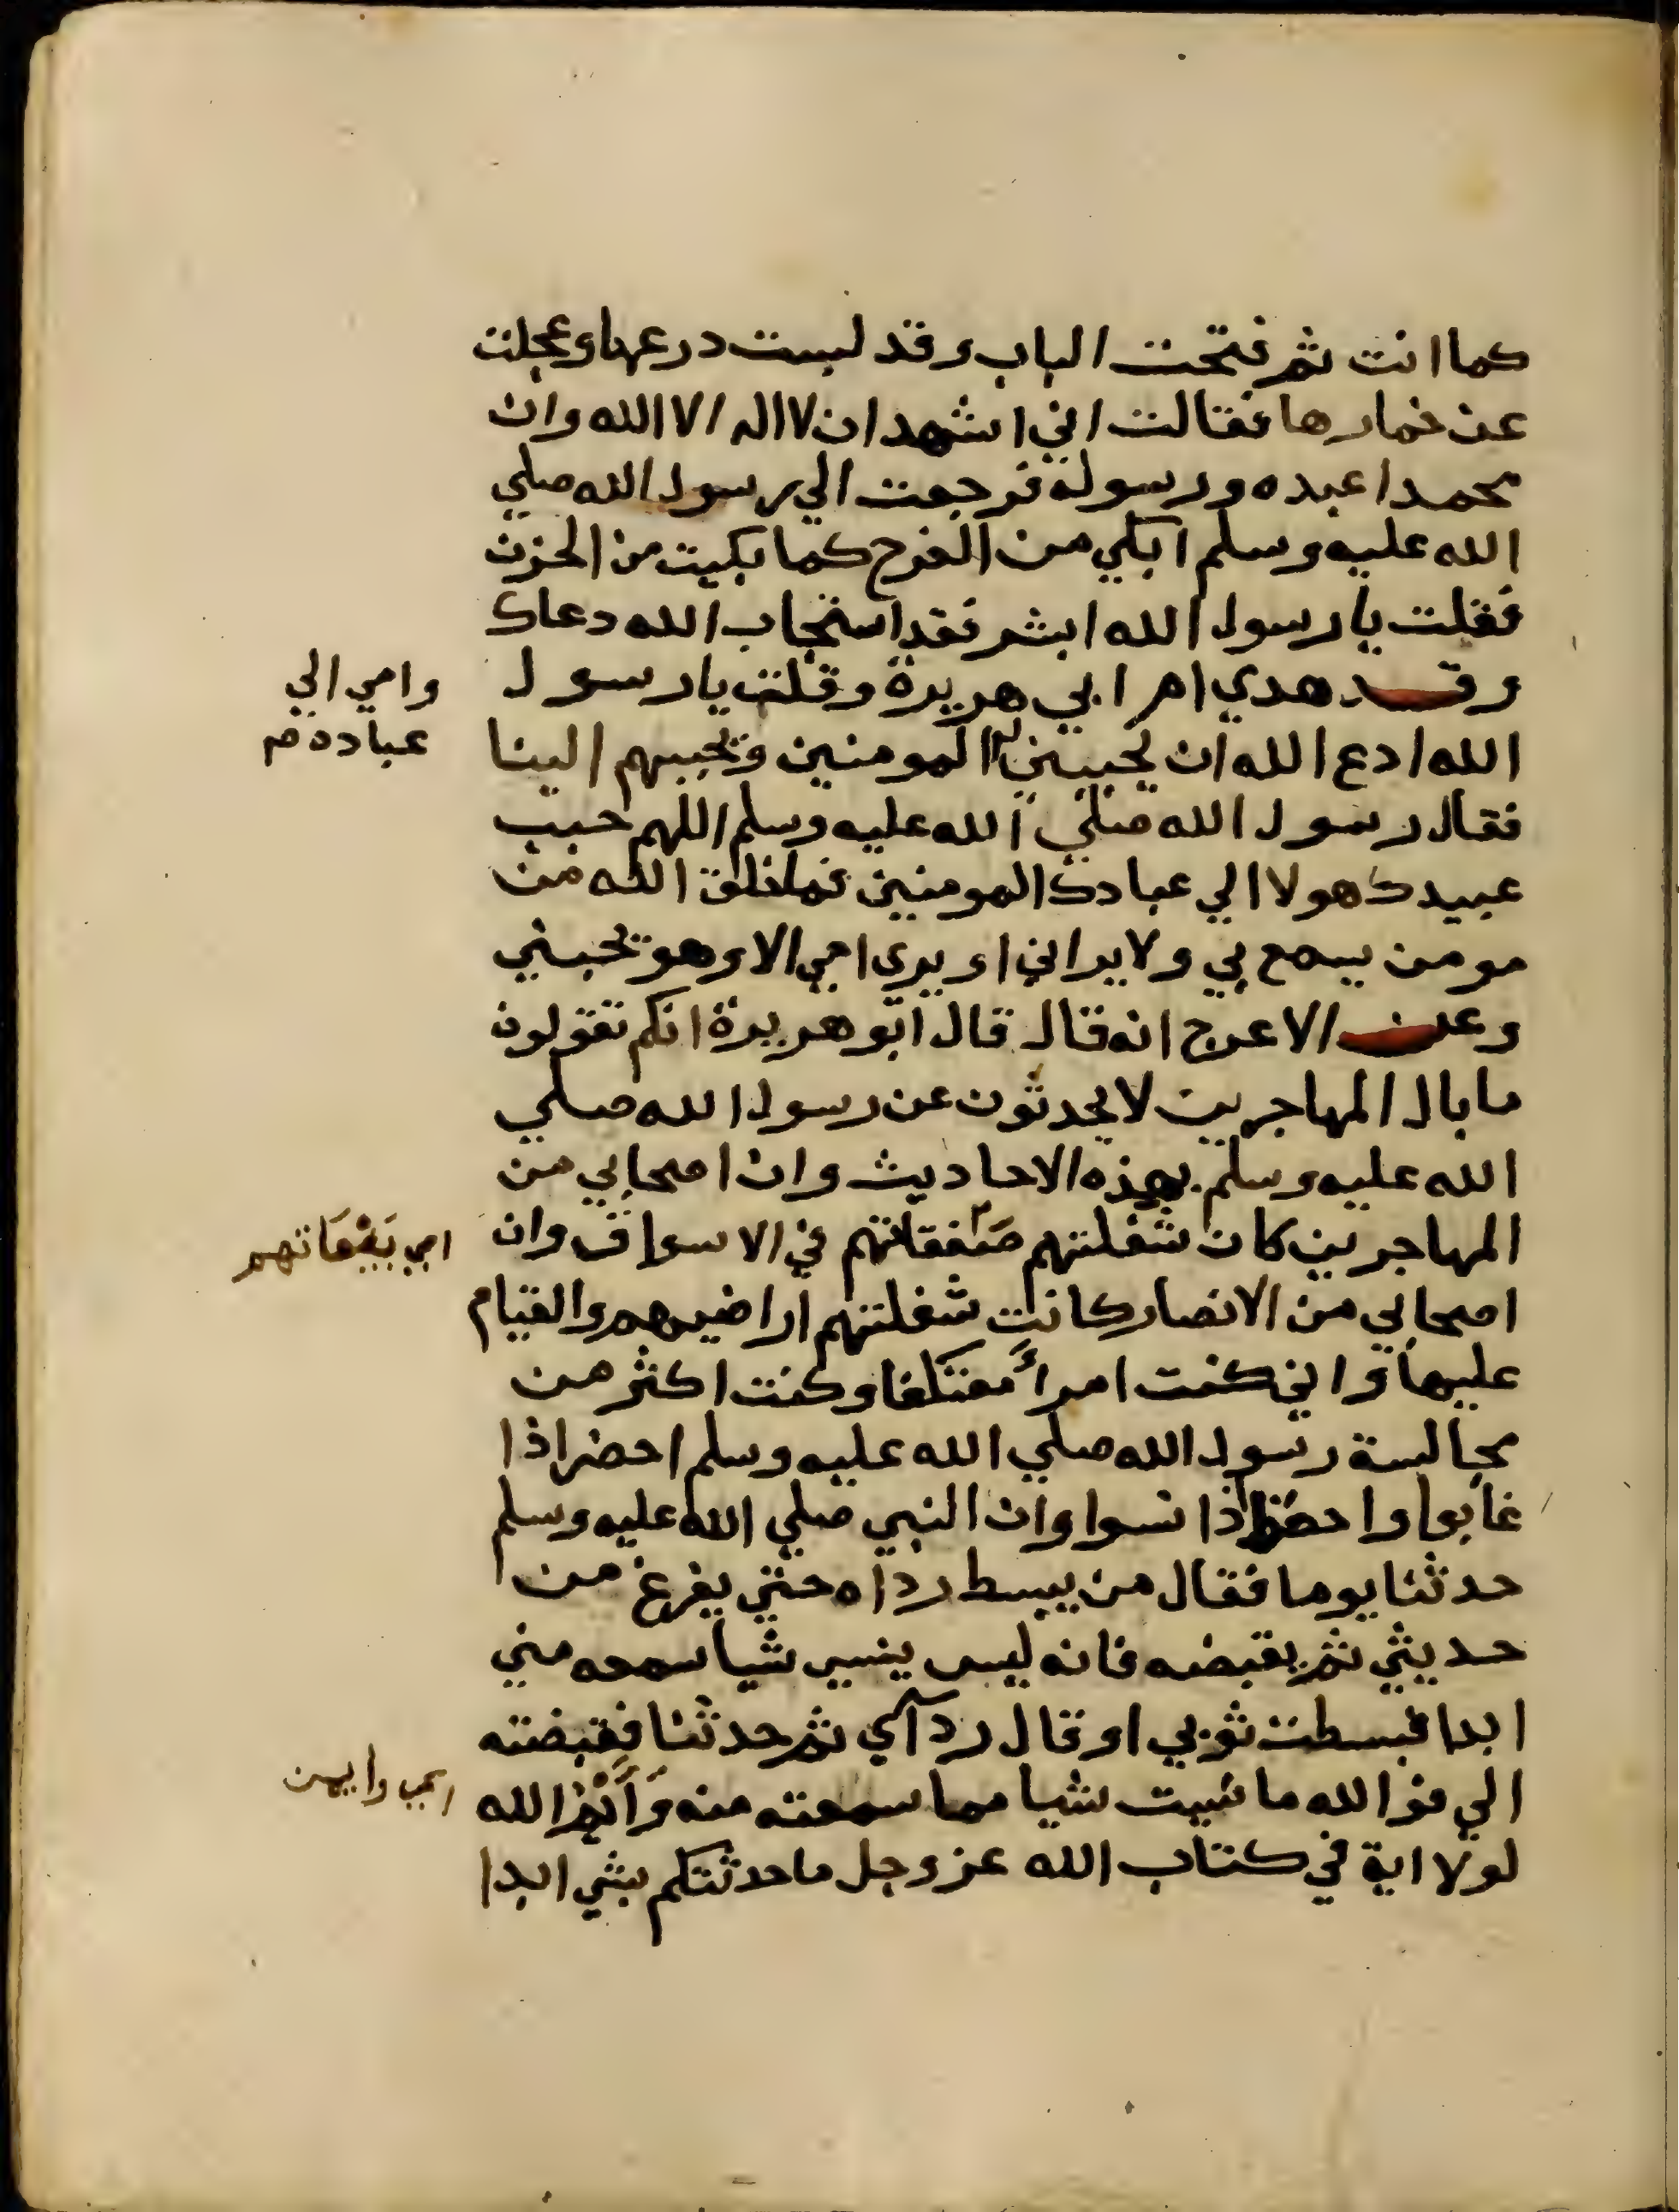 كما انت ثم فتحت الباب وقد لبست درعها وعجلت
عن خمارها فقالت اني اشهد ان لا اله الا الله وان
محمدا عبده ورسوله فرجعت الي رسول الله صلي
الله عليه وسلم ابكي من الفرح كما بكيت من الحزن
فقلت يا رسول الله ابشر فقد استجاب الله دعاك
وقد هدي ام ابي هريرة وقلت يا رسول
وامي الي
عباده م
الله ادع الله ان يحببني المومنين ويحببهم الينا
فقال رسول الله صلي الله عليه وسلم اللهم حبب
عبيدك هولا الي عبادك المومنين فما خلق الله من
مومن يسمع بي ولا يراني او يري امي الا وهو يحبني
وعن الاعرج انه قال قال ابو هريرة انكم تقولون
ما بال المهاجرين لا يحدثون عن رسول الله صلي
الله عليه وسلم بهذه الاحاديث وان اصحابي من
المهاجرين كان شغلتهم صفقاتهم في الاسواق وان
اي بَيْعَاتهم
اصحابي من الانصار كانت شغلتهم اراضيهم والقيام
عليها واني كنت امرأً معتكفا وكنت اكثر من
مجالسة رسول الله صلي الله عليه وسلم احضر اذا
غابوا واحفظ اذا نسوا وان النبي صلي الله عليه وسلم
حدثنا يوما فقال من يبسط رداه حتي يفرغ من
حديثي ثم يقبضه فانه ليس ينسي شيا سمعه مني
ابدا فبسطت ثوبي او قال ردآي ثم حدثنا فقبضته
الي فوالله ما نسيت شيا مما سمعته منه وَأيْمُ الله
اي وايمن
لولا اية في كتاب الله عز وجل ما حدثتكم بشي ابدا